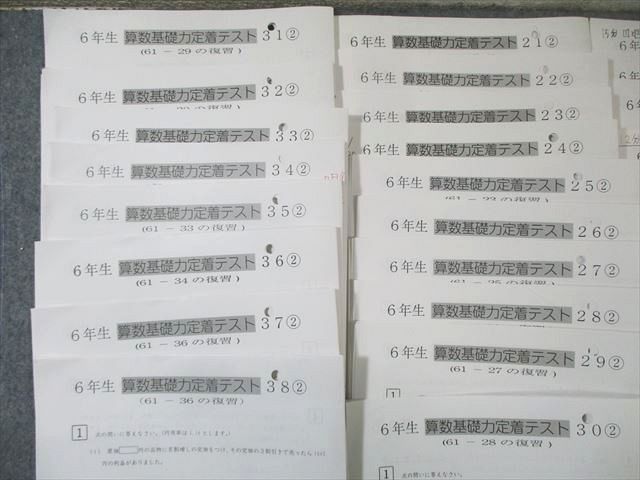 6年生 算数基礎力定着テスト 31②
(61－29の復習)
6年生 算数基礎力定着テスト 32②
6年生 算数基礎力定着テスト 33②
6年生 算数基礎力定着テスト 34②
6年生 算数基礎力定着テスト 35②
(61－33の復習)
6年生 算数基礎力定着テスト 36②
(61－34の復習)
6年生 算数基礎力定着テスト 37②
(61－36の復習)
6年生 算数基礎力定着テスト 38②
(61－36の復習)
1 次の問いに答えなさい。(円周率は3.14とします。)
6年生 算数基礎力定着テスト 21②
6年生 算数基礎力定着テスト 22②
6年生 算数基礎力定着テスト 23②
6年生 算数基礎力定着テスト 24②
6年生 算数基礎力定着テスト 25②
6年生 算数基礎力定着テスト 26②
6年生 算数基礎力定着テスト 27②
6年生 算数基礎力定着テスト 28②
6年生 算数基礎力定着テスト 29②
(61－27の復習)
1
6年生 算数基礎力定着テスト 30②
(61－28の復習)
1
6年
6年